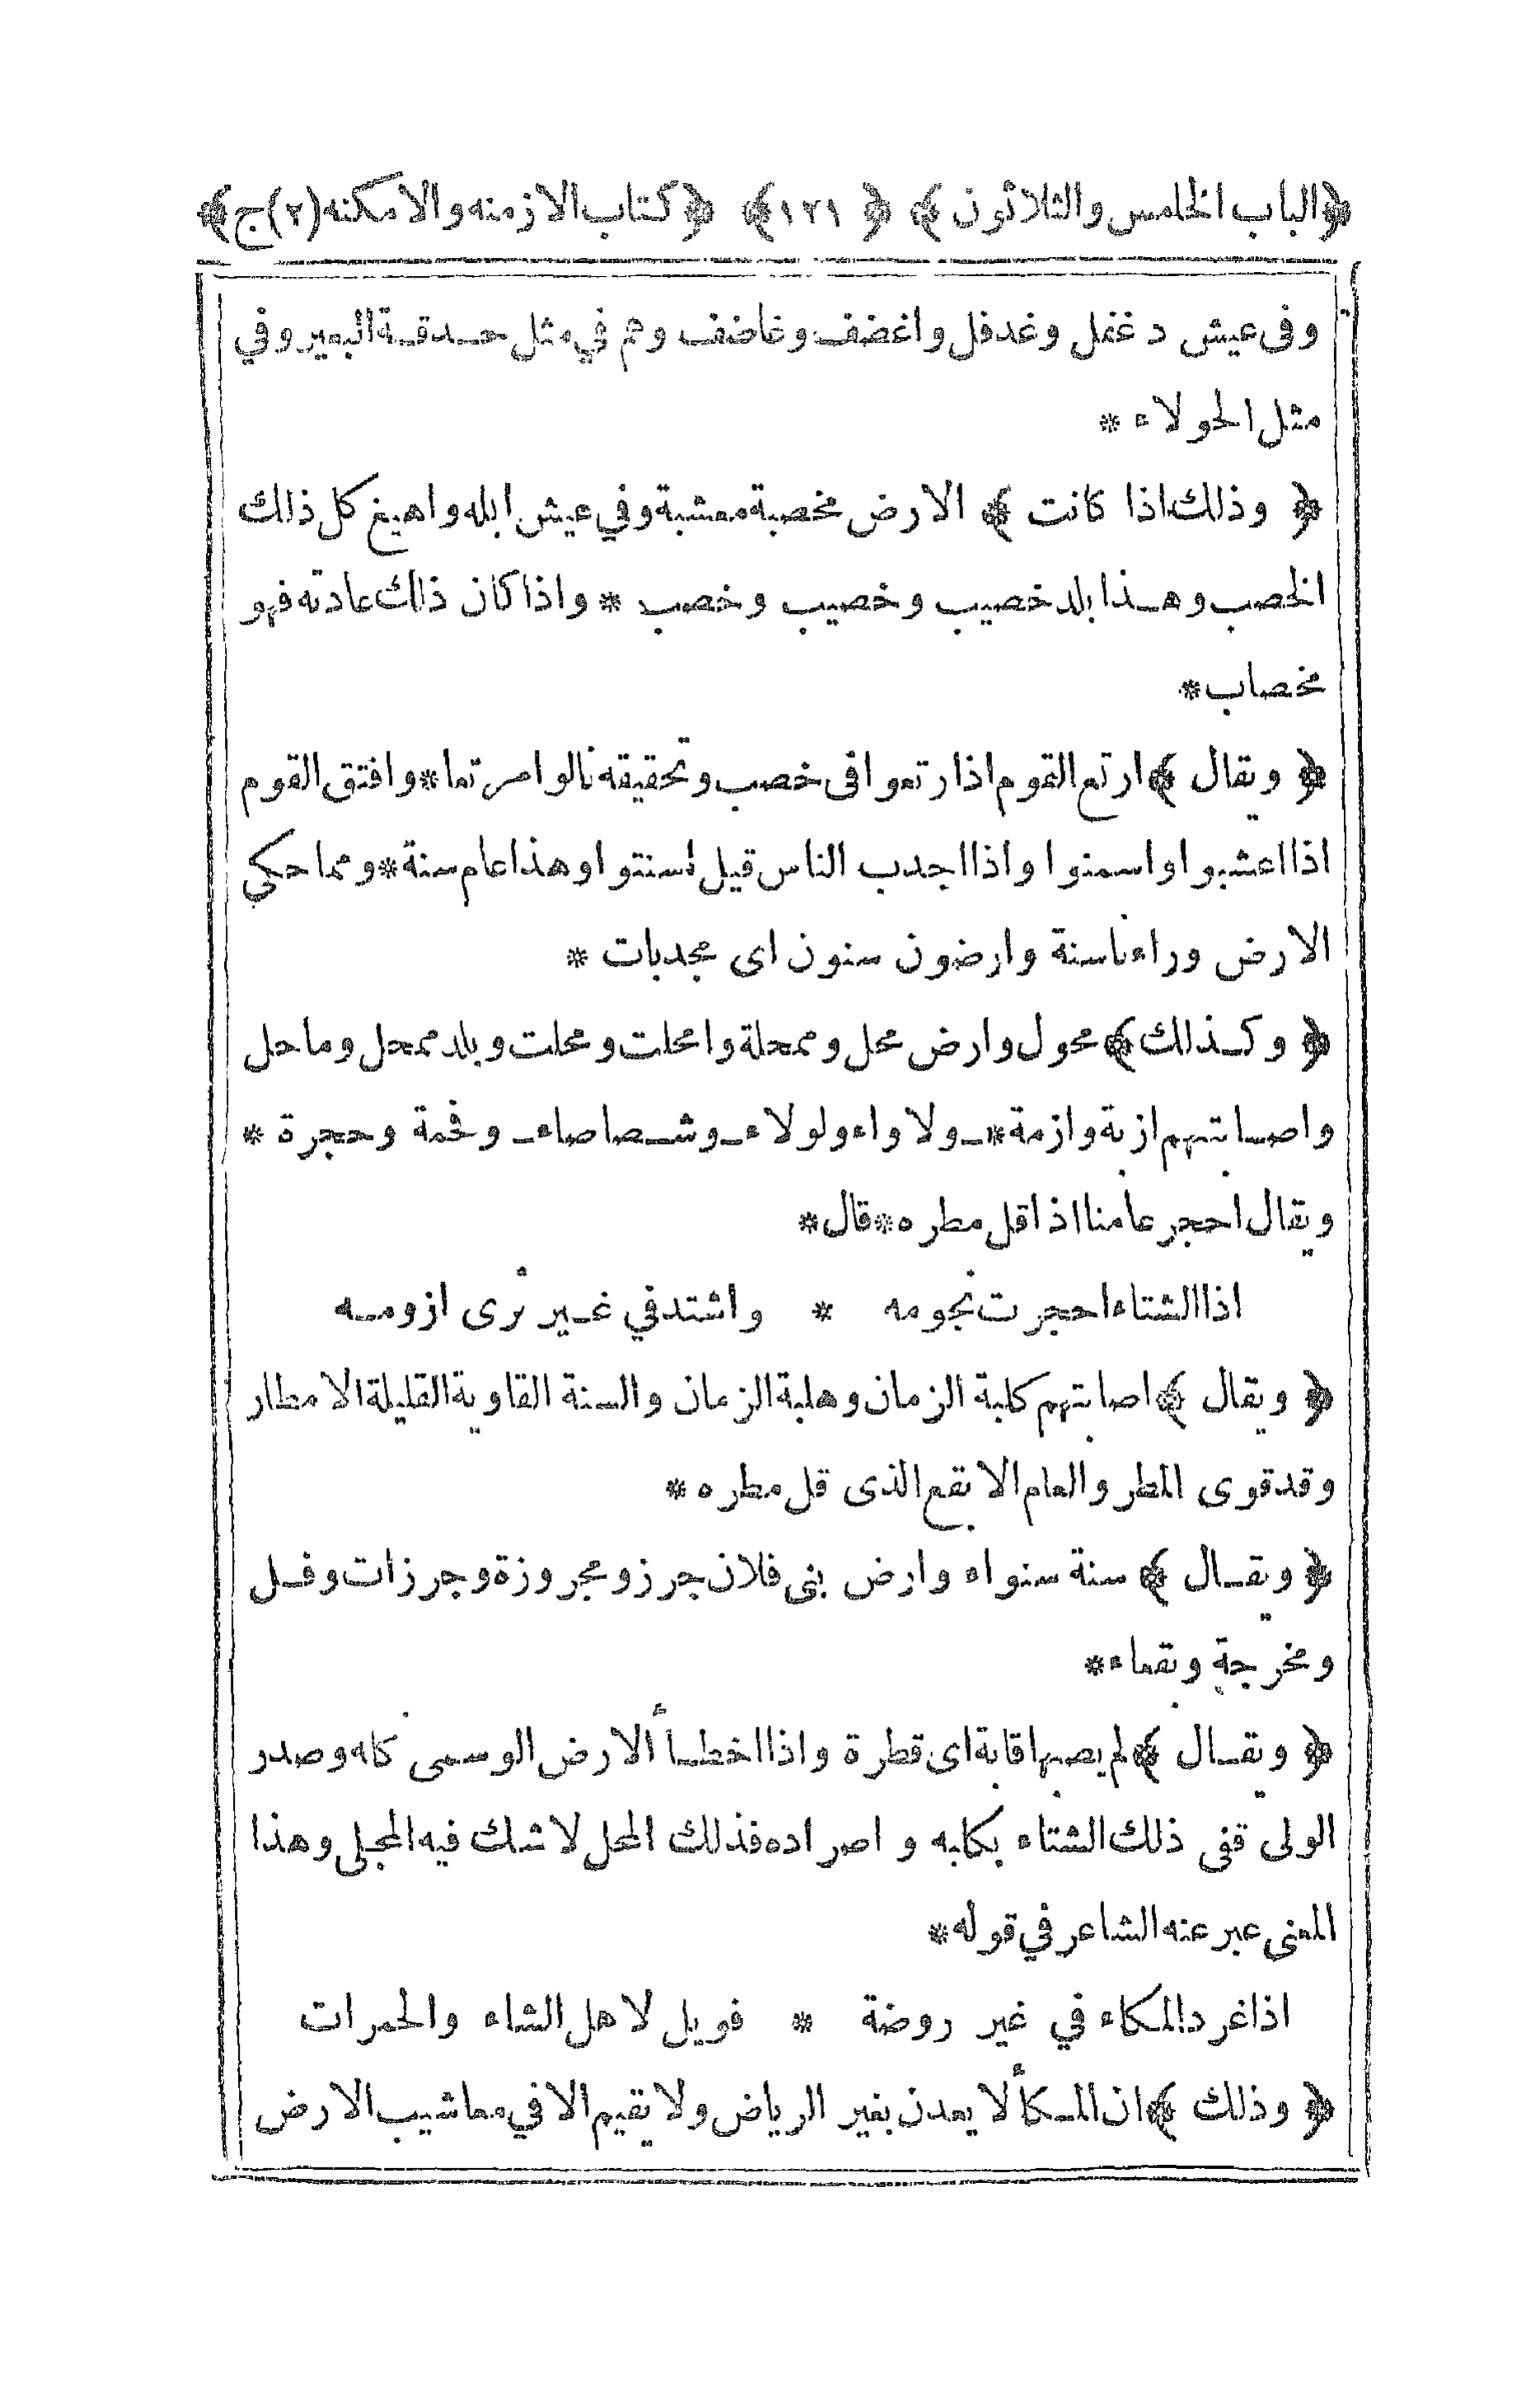 ﴿الباب الخامس والثلاثون﴾ ﴿١٢١﴾ ﴿كتاب الازمنه والامكنه(٢)ج﴾
وفى عيش دغفل وغدفل واغضف وغاضف وهم في مثل حدقة البعير وفي
مثل الحولاء *
﴿ وذلك اذا كانت ﴾ الارض مخصبة معشبة وفي عيش ابله واهيغ كل ذلك
الخصب وهذا بلد خصيب وخصيب وخصب * واذا كان ذلك عادته فهو
مخصاب *
﴿ ويقال ﴾ ارتع القوم اذا رتعوا فى خصب وتحقيقه نالوا مرتعا * وافتق القوم
اذا اعشبوا واسمنوا واذا اجدب الناس قيل اسنتوا وهذا عام سنة * ومما حكي
الارض وراءنا سنة وارضون سنون اى مجدبات *
﴿ وكذلك ﴾ محول وارض محل وممحلة وامحلت ومحلت وبلد ممحل وماحل
واصابتهم ازبة وازمة * ولاواء ولولاء وشصاصاء وقحمة وحجرة *
ويقال احجر عامنا اذا قل مطره * قال *
اذا الشتاء احجرت نجومه * واشتد في غير ثرى ازومه
﴿ ويقال ﴾ اصابتهم كلبة الزمان وهلبة الزمان والسنة القاوية القليلة الامطار
وقد قوى المطر والعام الابقع الذى قل مطره *
﴿ ويقال ﴾ سنة سنواء وارض بنى فلان جرز ومجروزة وجرزات وفل
ومخرجة وبقعاء *
﴿ ويقال ﴾ لم يصبها قابة اى قطرة واذا اخطأ الارض الوسمى كله وصدر
الولى ففى ذلك الشتاء بكلبه و اصراده فذلك المحل لا شك فيه المجلى وهذا
المعنى عبر عنه الشاعر في قوله *
اذا غرد المكاء في غير روضة * فويل لاهل الشاء والحمرات
﴿ وذلك ﴾ ان المكأ لا يعدن بغير الرياض ولا يقيم الا في معاشيب الارض